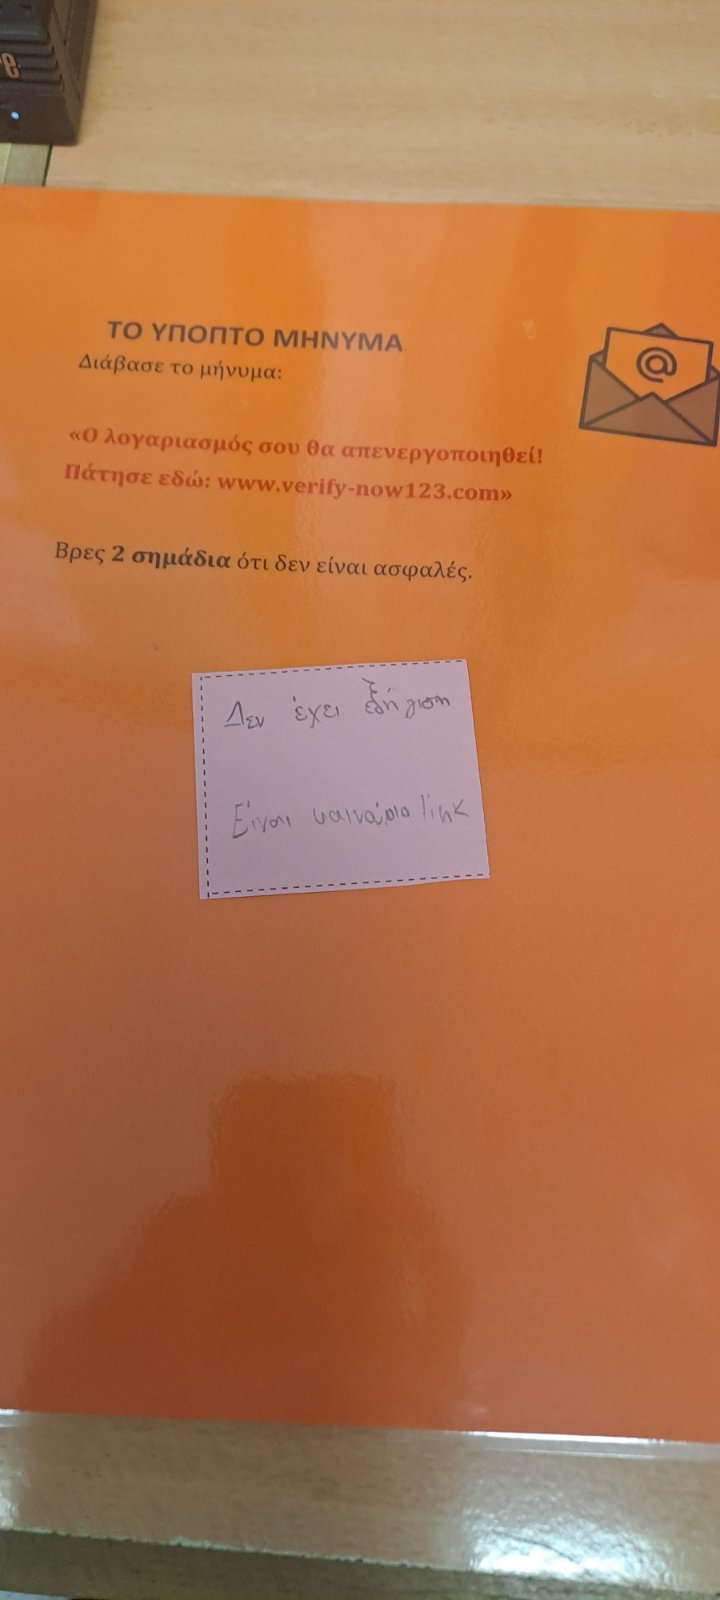 e
ΤΟ ΥΠΟΠΤΟ ΜΗΝΥΜΑ
Διάβασε το μήνυμα:
@
«Ο λογαριασμός σου θα απενεργοποιηθεί!
Πάτησε εδώ: www.verify-now123.com»
Βρες 2 σημάδια ότι δεν είναι ασφαλές.
Δεν έχει εξήγιση
Είναι καινούριο link